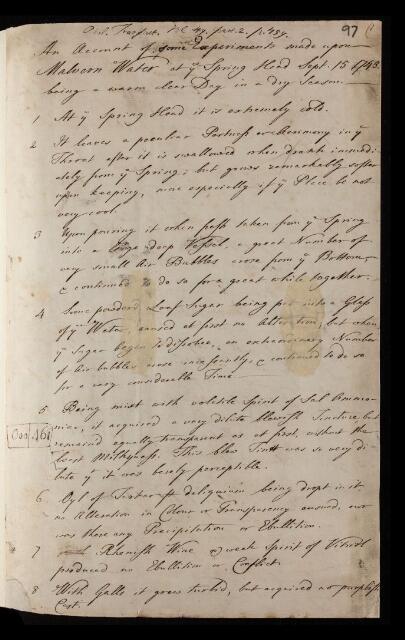 97
An Account of some Experiments made upon
Malvern Water at yͤ Spring Head Sept. 15 1743.
being a warm clear Day in a dry Season.
1 At yͤ Spring Head it is extremely cold.
2 It leaves a peculiar Pertness or Acrimony in yͤ
Throat after it is swallowed when drank immedi-
ately from yͤ Spring; but grows remarkably softer
upon keeping, more especially if yͤ Place be not
very cool.
3 Upon pouring it when fresh taken from yͤ Spring
into a large deep Vessel, a great Number of
very small Air Bubbles arose from yͤ Bottom,
& continued to do so for a great while together.
4 Some powdered Loaf Sugar being put into a Glass
of yͤ Water, caused at first no Alteration, but when
yͤ Sugar began to dissolve, an extraordinary Number
of Air bubbles arose incessantly & continued to do so
for a very considerable Time
5 Being mixt with volatile Spirit of Sal Ammo-
niac, it acquired a very dilute blewish Tincture but
remained equally transparent as at first, without the
least Milkyness. This blew Tint was so very di-
lute yͭ it was barely perceptible.
6 Oyl of Tartar pͬ deliquium being dropt in it
no Alteration in Colour or Transparency ensued, nor
was there any Precipitation or Ebullition.
7 Rhenish Wine & weak Spirit of Vitriol
produced no Ebullition or Conflict.
8 With Galls it grew turbid, but acquired no purplish
Cast.